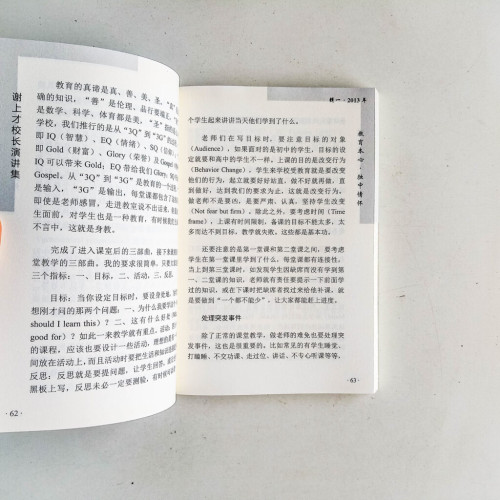 谢上才校长演讲集
教育的真谛是真、善、美、圣。“真”
确的知识，“善”是伦理、品行要端正，“美”
是数学、科学、体育都是美，“圣”
学校，我们推行的是从“3Q”到“3G”
即 IQ（智慧）、EQ（情绪）、SQ（
即 Gold（财富）、Glory（荣誉）及 Gospel
IQ 可以带来 Gold；EQ 带给我们 Glory；SQ
Gospel。从“3Q”到“3G”是教育的一个过程
是输入，“3G”是输出，每堂课都包含了
即使是老师感冒，走进教室说不出话来，
生面前，对学生也是一种教育，有时候
不言中，这就是身教。
完成了进入课室后的三部曲，接下来
堂教学的三部曲。我的要求很简单，只要
三个指标：一、目标，二、活动，三、反思。
目标：当你设定目标时，要设身处地，
想刚才问的那两个问题：一、为什么我要学
should I learn this）？二、这有什么好处
good for）？如此一来教学就有重点。活动：
的课程，应该也要设计一些活动，
间放在活动上，而且活动时要把生活和知识
反思：反思就是要提问题，让学生回答，
黑板上写，反思未必一定要测验，有时候
·62·
辑一·2013 年
教育本心·独中情怀
个学生起来讲讲当天他们学到了什么。
老师们在写目标时，要注意目标的对象
（Audience），如果面对的是初中的学生，目标的设
定就要和高中的学生不一样。上课的目的是改变行为
（Behavior Change），学生来学校受教育就是要改变
他们的行为，起立就要好好站直，做不好就再做，直
到做好，达到我们的要求为止，这就是改变行为。
做老师不是要凶，是要严肃、认真，坚持作些改变
（Not fear but firm）。除此之外，要考虑时间（Time
frame），上课有时间限制，备课的目标不能太多，太
多而达不到目标，教学就失败。这些都是基本功。
还要注意的是第一堂课和第二堂课之间，要考虑
学生在第一堂课里学到了什么，每堂课都有连接性。
当上到第三堂课时，如发现学生因缺席而没有学到第
一、二堂课的知识，老师就有责任要提示一下前面学
过的知识，或在下课时把缺席者找过来给他补课，就
是要做到“一个都不能少”，让大家都能赶上进度。
处理突发事件
除了正常的课堂教学，做老师的难免也要处理突
发事件，这也是很重要的。比如常见的有学生睡觉、
打瞌睡、不交功课、走过位、讲话、不专心听课等等。
·63·